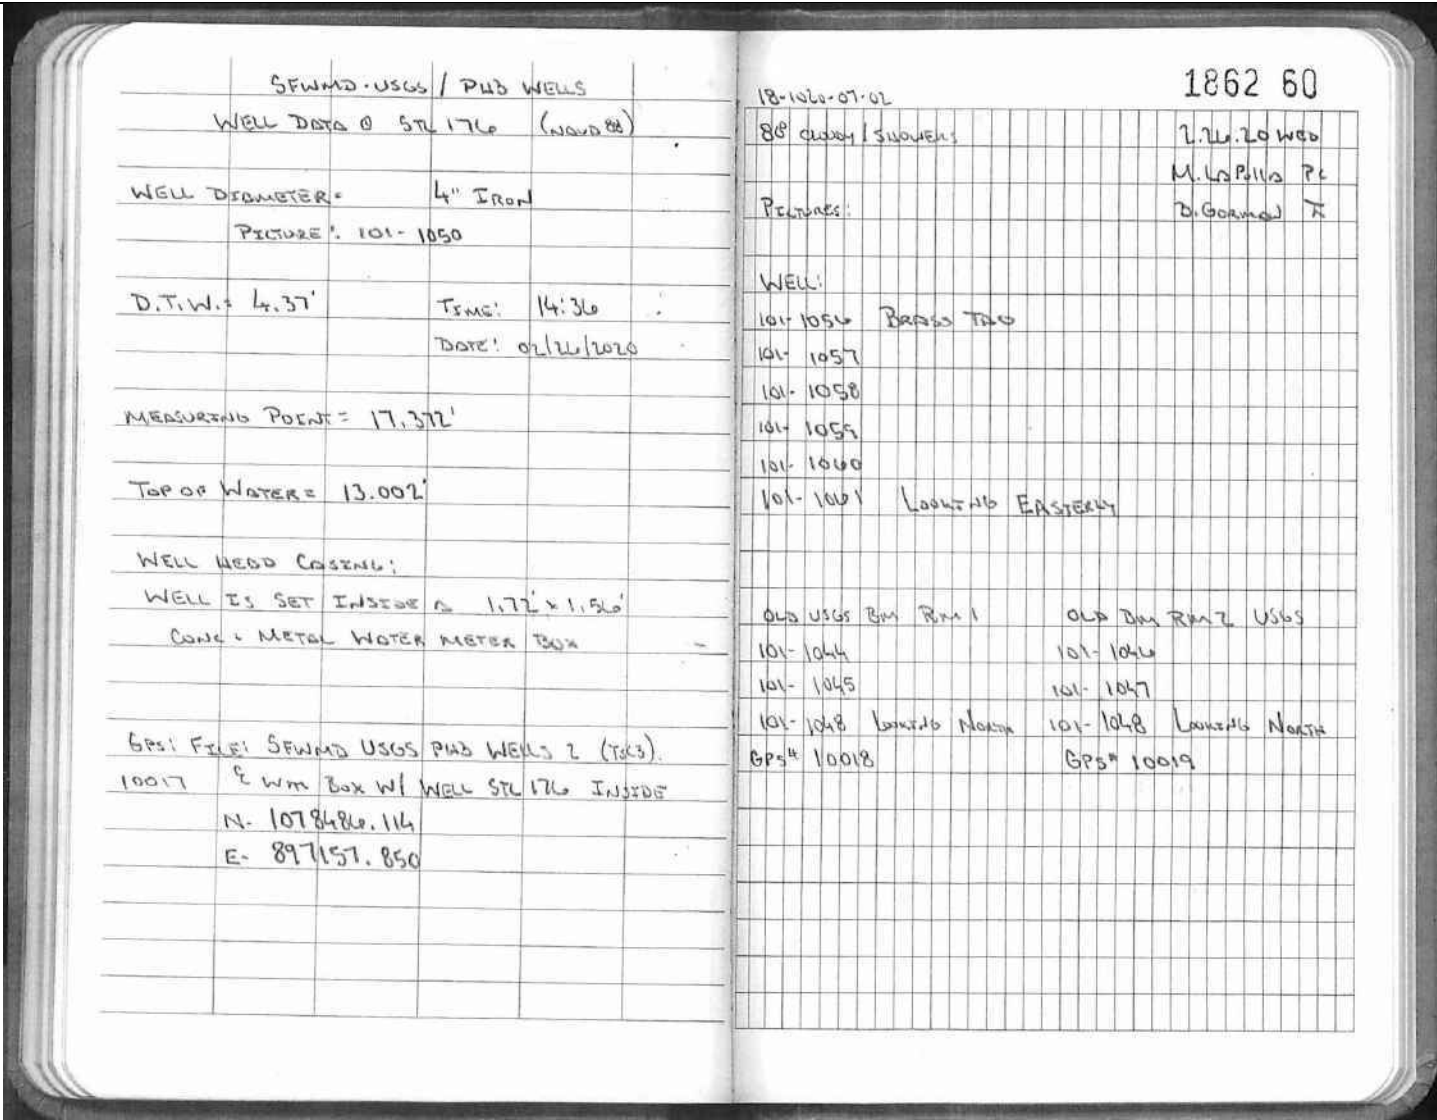 SFWMD-USGS / PWB WELLS
WELL DATA @ STL 176 (NAVD 88)
WELL DIAMETER= 4" IRON
PICTURE: 101-1050
D.T.W.= 4.37' TIME: 14:36
DATE: 02/26/2020
MEASURING POINT = 17.372'
TOP OF WATER= 13.002'
WELL HEAD CASING:
WELL IS SET INSIDE A 1.72' x 1.56'
CONC & METAL WATER METER BOX
GPS: FILE: SFWMD USGS PWB WELLS 2 (TSC3).
10017 ℄ WM BOX W/ WELL STL 176 INSIDE
N- 1078486.114
E- 897157.850
1862 60
18-1020-07-02
88° CLOUDY / SHOWERS 2.26.20 WED
M. LAPILLA PC
PICTURES: D. GORMAN π
WELL:
101-1056 BRASS TAG
101-1057
101-1058
101-1059
101-1060
101-1061 LOOKING EASTERLY
OLD USGS BM RM 1 OLD BM RM 2 USGS
101-1044 101-1046
101-1045 101-1047
101-1048 LOOKING NORTH 101-1048 LOOKING NORTH
GPS# 10018 GPS# 10019